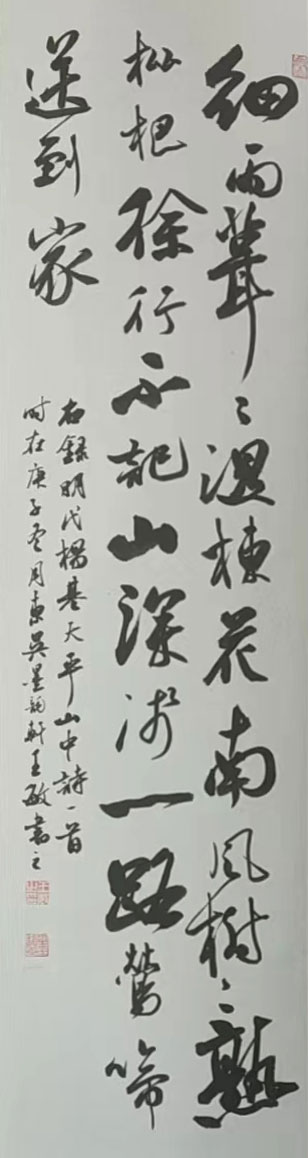 細雨茸〻湿楝花南風樹〻熟
枇杷徐行不記山深浅一路鶯啼
送到家
右録明代楊基天平山中詩一首
时在庚子冬月東吴墨韵軒王敏書之